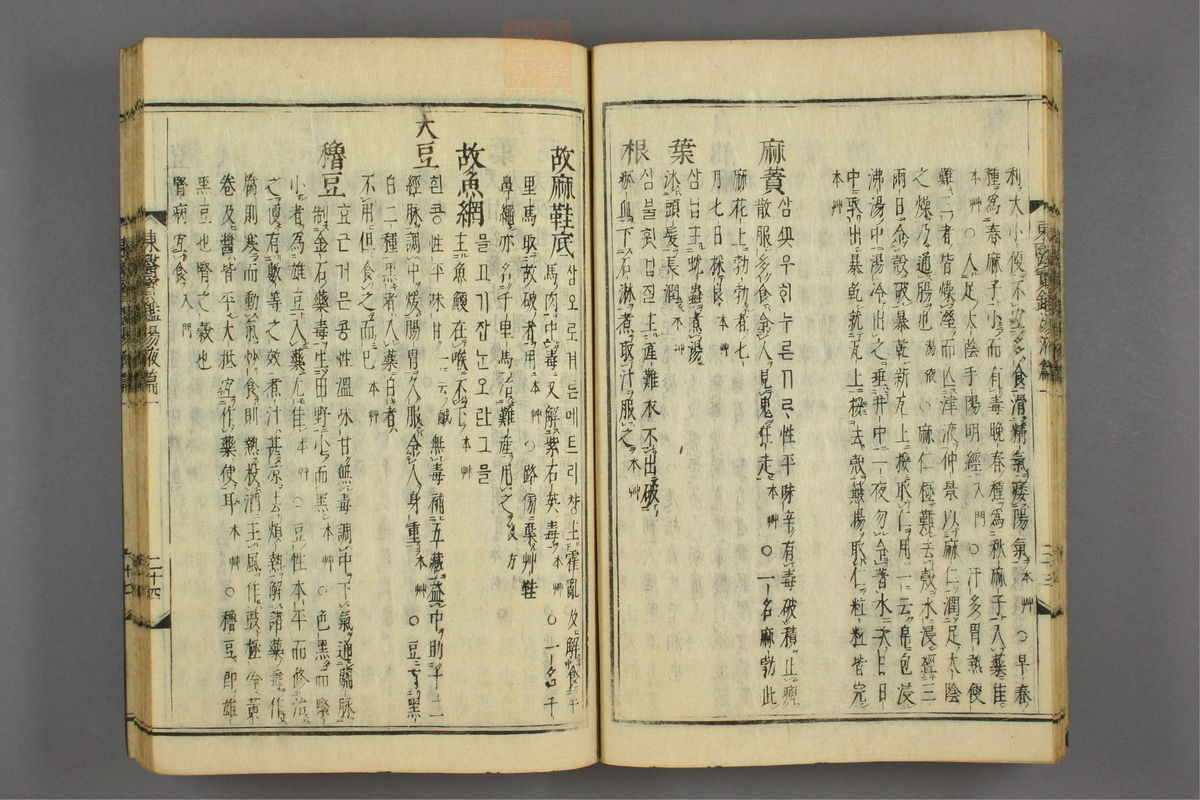 利大小便不宜多食滑精氣痿陽氣本艸○早春
種爲春麻子小而有毒晚春種爲秋麻子入藥佳
本艸○入足太陰手陽明經入門○汗多胃熱便
難三者皆燥濕而亡津液仲景以麻仁潤足太陰
之燥乃通腸也湯液○麻仁極難去殼水浸經三
兩日令殼破暴乾新瓦上挼取仁用一云帛包浸
沸湯中湯冷出之垂井中一夜勿令着水次日日
中暴乾就瓦上挼去殼簸揚取仁粒粒皆完
本艸
麻蕡삼ᄡᅵ우희누른ᄀᆞᄅᆞ性平味辛有毒破積止痺
散服多食令人見鬼狂走本艸○一名麻勃此
麻花上勃勃者七
月七日採良本艸
葉삼닙主蚘蟲煮湯
沐頭髮長潤本艸
根삼불휘主産難衣不出破
瘀血下石淋煮取汁服之本艸
故麻鞋底삼오로겨른메트리창主霍亂及解食牛
馬肉中毒又解紫石英毒本艸○一名千
里馬取故破者用本艸○路傍棄艸鞋
鼻繩亦名千里馬治難産用之良方
故魚網主魚鯁在喉不下本艸
믈고기잡ᄂᆞᆫ오란그믈
大豆흰콩性平味甘一云鹹無毒補五藏益中助十二
經脉調中煖腸胃久服令人身重本艸○豆有黑
白二種黑者入藥白者
不用但食之而已本艸
穭豆효근거믄콩性溫味甘無毒調中下氣通關脉
制金石藥毒生田野小而黑本艸○色黑而緊
小者爲雄豆入藥尤佳本艸○豆性本平而修治
之便有數等之效煮汁甚涼去煩熱解諸藥毒作
腐則寒而動氣炒食則熱投酒主風作豉極冷黃
卷及醬皆平大抵宜作藥使耳本艸○穭豆卽雄
黑豆也腎之穀也
腎病宜食入門
東醫寶鑑湯液篇一
二十四